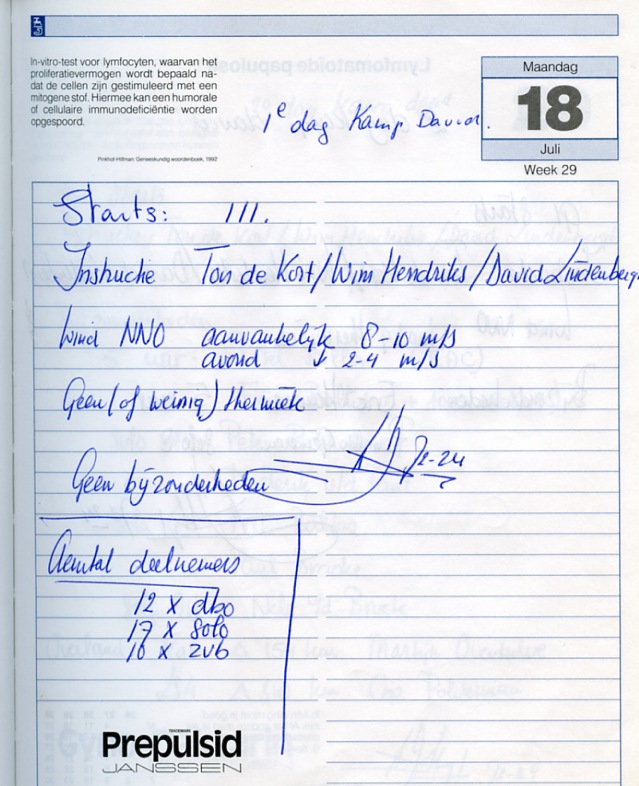 In-vitro-test voor lymfocyten, waarvan het
proliferatievermogen wordt bepaald na-
dat de cellen zijn gestimuleerd met een
mitogene stof. Hiermee kan een humorale
of cellulaire immunodeficiëntie worden
opgespoord.
Pinkhof-Hilfman, Geneeskundig woordenboek, 1992
Maandag
18
Juli
Week 29
1e dag Kamp David.
Starts: 111.
Instructie Ton de Kort/Wim Hendriks/David Lindenberg.
Wind NNO aanvankelijk 8-10 m/s
avond ↓ 2-4 m/s
Geen (of weinig) thermiek
Geen bijzonderheden
Aantal deelnemers
12 x dbo
17 x solo
16 x zvb
TRADEMARK
Prepulsid
JANSSEN